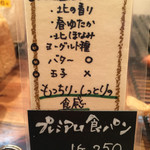 ・北の香り
・春ゆたか
・北ほなみ
ヨーグルト種
バター ○
玉子 ×
もっちり、しっとりの
食感
プレミアム食パン
1斤 250